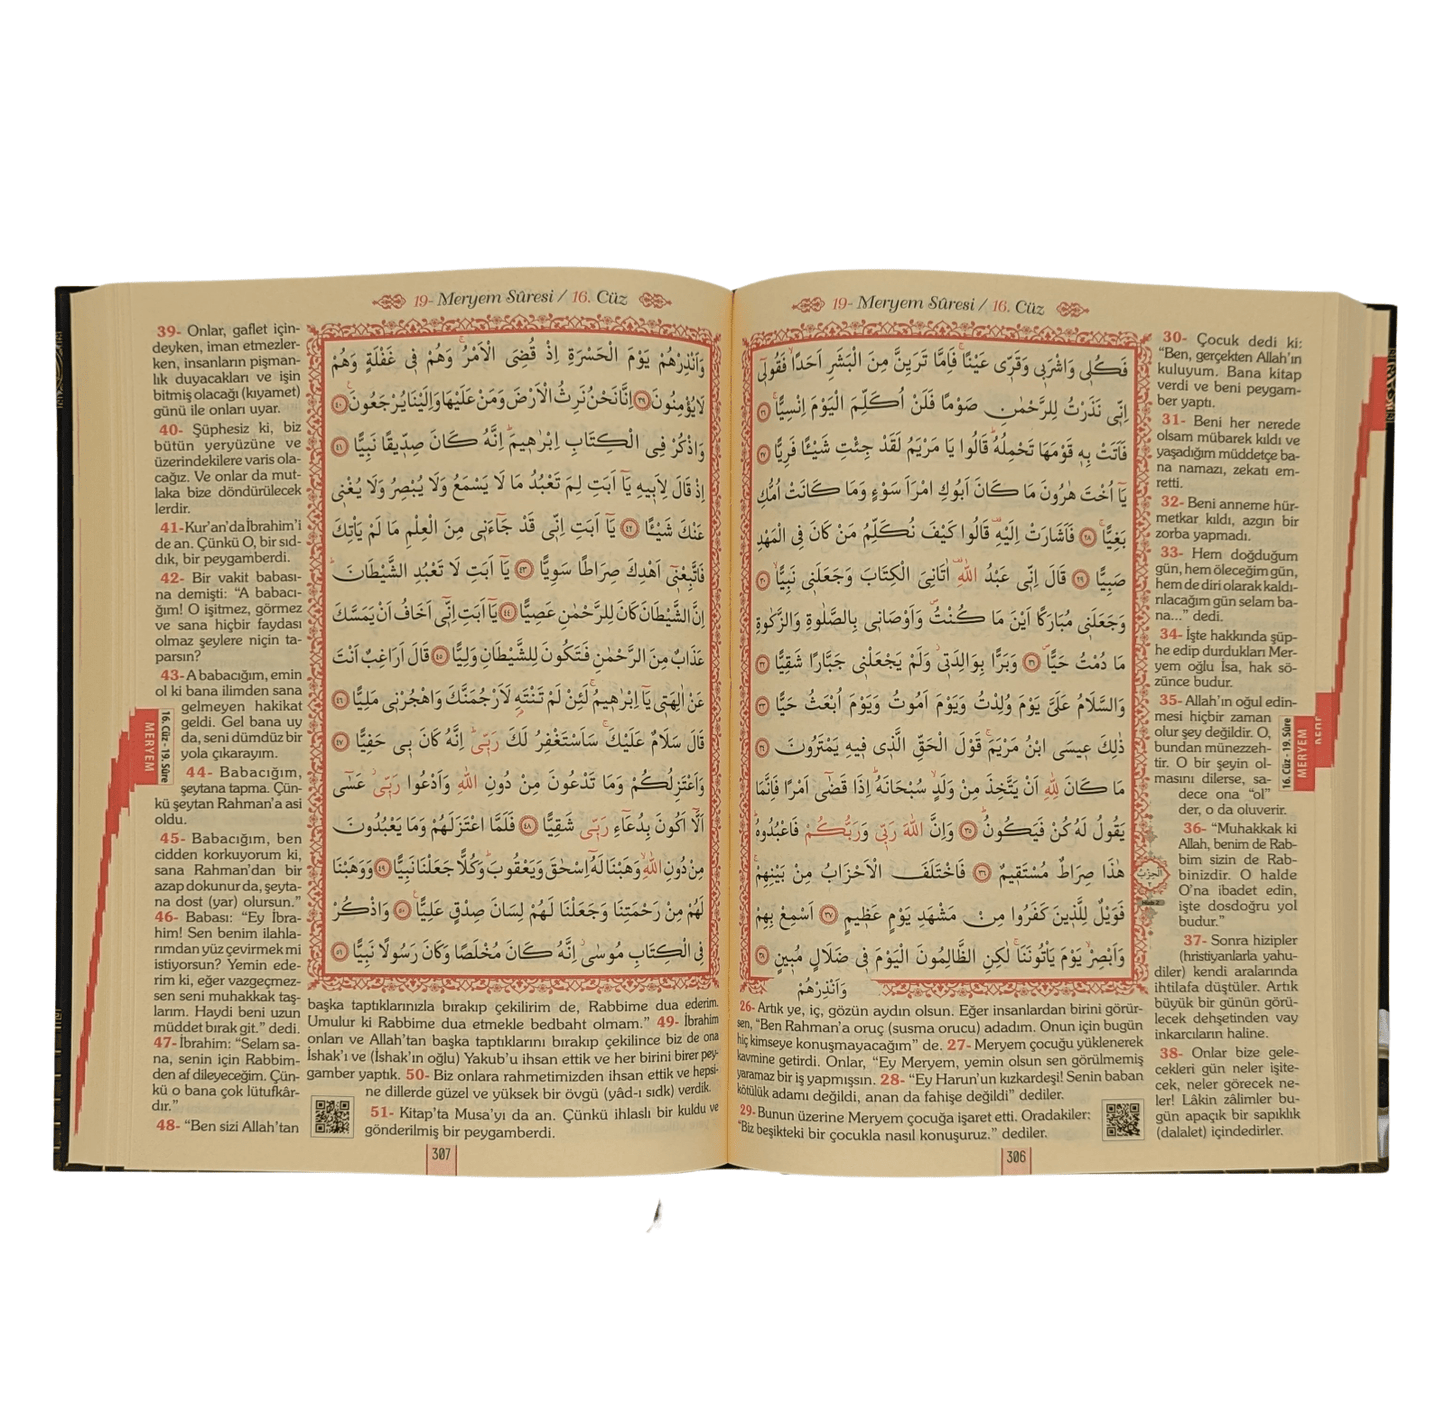 19- Meryem Sûresi / 16. Cüz
فَكُلٖي وَاشْرَبٖي وَقَرّٖي عَيْنًاۚ فَاِمَّا تَرَيِنَّ مِنَ الْبَشَرِ اَحَدًاۙ فَقُولٖٓي
اِنّٖي نَذَرْتُ لِلرَّحْمٰنِ صَوْمًا فَلَنْ اُكَلِّمَ الْيَوْمَ اِنْسِيًّاۚ ٢٦
فَاَتَتْ بِهٖ قَوْمَهَا تَحْمِلُهُۜ قَالُوا يَا مَرْيَمُ لَقَدْ جِئْتِ شَيْـًٔا فَرِيًّا ٢٧
يَٓا اُخْتَ هٰرُونَ مَا كَانَ اَبُوكِ امْرَاَ سَوْءٍ وَمَا كَانَتْ اُمُّكِ
بَغِيًّاۚ ٢٨ فَاَشَارَتْ اِلَيْهِۜ قَالُوا كَيْفَ نُكَلِّمُ مَنْ كَانَ فِي الْمَهْدِ
صَبِيًّا ٢٩ قَالَ اِنّٖي عَبْدُ اللّٰهِۜ اٰتَانِيَ الْكِتَابَ وَجَعَلَنٖي نَبِيًّاۙ ٣٠
وَجَعَلَنٖي مُبَارَكًا اَيْنَ مَا كُنْتُۖ وَاَوْصَانٖي بِالصَّلٰوةِ وَالزَّكٰوةِ
مَا دُمْتُ حَيًّاۖ ٣١ وَبَرًّا بِوَالِدَتٖيۘ وَلَمْ يَجْعَلْنٖي جَبَّارًا شَقِيًّا ٣٢
وَالسَّلَامُ عَلَيَّ يَوْمَ وُلِدْتُ وَيَوْمَ اَمُوتُ وَيَوْمَ اُبْعَثُ حَيًّا ٣٣
ذٰلِكَ عٖيسَى ابْنُ مَرْيَمَۚ قَوْلَ الْحَقِّ الَّذٖي فٖيهِ يَمْتَرُونَ ٣٤
مَا كَانَ لِلّٰهِ اَنْ يَتَّخِذَ مِنْ وَلَدٍۙ سُبْحَانَهُۜ اِذَا قَضٰٓى اَمْرًا فَاِنَّمَا
يَقُولُ لَهُ كُنْ فَيَكُونُۜ ٣٥ وَاِنَّ اللّٰهَ رَبّٖي وَرَبُّكُمْ فَاعْبُدُوهُۜ
هٰذَا صِرَاطٌ مُسْتَقٖيمٌ ٣٦ فَاخْتَلَفَ الْاَحْزَابُ مِنْ بَيْنِهِمْۚ
فَوَيْلٌ لِلَّذٖينَ كَفَرُوا مِنْ مَشْهَدِ يَوْمٍ عَظٖيمٍ ٣٧ اَسْمِعْ بِهِمْ
وَاَبْصِرْۙ يَوْمَ يَأْتُونَنَاۚ لٰكِنِ الظَّالِمُونَ الْيَوْمَ فٖي ضَلَالٍ مُبٖينٍ ٣٨
وَاَنْذِرْهُمْ
اَلْحِزْبُ
26- Artık ye, iç, gözün aydın olsun. Eğer insanlardan birini görür-
sen, “Ben Rahman’a oruç (susma orucu) adadım. Onun için bugün
hiç kimseye konuşmayacağım” de. 27- Meryem çocuğu yüklenerek
kavmine getirdi. Onlar, “Ey Meryem, yemin olsun sen görülmemiş
yaramaz bir iş yapmışsın. 28- “Ey Harun’un kızkardeşi! Senin baban
kötülük adamı değildi, anan da fahişe değildi” dediler.
29- Bunun üzerine Meryem çocuğa işaret etti. Oradakiler:
“Biz beşikteki bir çocukla nasıl konuşuruz.” dediler.
30- Çocuk dedi ki:
“Ben, gerçekten Allah’ın
kuluyum. Bana kitap
verdi ve beni peygam-
ber yaptı.
31- Beni her nerede
olsam mübarek kıldı ve
yaşadığım müddetçe ba-
na namazı, zekatı em-
retti.
32- Beni anneme hür-
metkar kıldı, azgın bir
zorba yapmadı.
33- Hem doğduğum
gün, hem öleceğim gün,
hem de diri olarak kaldı-
rılacağım gün selam ba-
na...” dedi.
34- İşte hakkında şüp-
he edip durdukları Mer-
yem oğlu İsa, hak sö-
zünce budur.
35- Allah’ın oğul edin-
mesi hiçbir zaman
olur şey değildir. O,
bundan münezzeh-
tir. O bir şeyin ol-
masını dilerse, sa-
dece ona “ol”
der, o da oluverir.
36- “Muhakkak ki
Allah, benim de Rab-
bim sizin de Rab-
binizdir. O halde
O’na ibadet edin,
işte dosdoğru yol
budur.”
37- Sonra hizipler
(hristiyanlarla yahu-
diler) kendi aralarında
ihtilafa düştüler. Artık
büyük bir günün görü-
lecek dehşetinden vay
inkarcıların haline.
38- Onlar bize gele-
cekleri gün neler işite-
cek, neler görecek ne-
ler! Lâkin zâlimler bu-
gün apaçık bir sapıklık
(dalalet) içindedirler.
16. Cüz - 19. Sûre
MERYEM
306
19- Meryem Sûresi / 16. Cüz
وَاَنْذِرْهُمْ يَوْمَ الْحَسْرَةِ اِذْ قُضِيَ الْاَمْرُۢ وَهُمْ فٖي غَفْلَةٍ وَهُمْ
لَا يُؤْمِنُونَ ٣٩ اِنَّا نَحْنُ نَرِثُ الْاَرْضَ وَمَنْ عَلَيْهَا وَاِلَيْنَا يُرْجَعُونَۚ ٤٠
وَاذْكُرْ فِي الْكِتَابِ اِبْرٰهٖيمَۜ اِنَّهُ كَانَ صِدّٖيقًا نَبِيًّا ٤١
اِذْ قَالَ لِاَبٖيهِ يَٓا اَبَتِ لِمَ تَعْبُدُ مَا لَا يَسْمَعُ وَلَا يُبْصِرُ وَلَا يُغْنٖي
عَنْكَ شَيْـًٔا ٤٢ يَٓا اَبَتِ اِنّٖي قَدْ جَٓاءَنٖي مِنَ الْعِلْمِ مَا لَمْ يَأْتِكَ
فَاتَّبِعْنٖٓي اَهْدِكَ صِرَاطًا سَوِيًّا ٤٣ يَٓا اَبَتِ لَا تَعْبُدِ الشَّيْطَانَۜ
اِنَّ الشَّيْطَانَ كَانَ لِلرَّحْمٰنِ عَصِيًّا ٤٤ يَٓا اَبَتِ اِنّٖٓي اَخَافُ اَنْ يَمَسَّكَ
عَذَابٌ مِنَ الرَّحْمٰنِ فَتَكُونَ لِلشَّيْطَانِ وَلِيًّا ٤٥ قَالَ اَرَاغِبٌ اَنْتَ
عَنْ اٰلِهَتٖي يَٓا اِبْرٰهٖيمُۚ لَئِنْ لَمْ تَنْتَهِ لَاَرْجُمَنَّكَ وَاهْجُرْنٖي مَلِيًّا ٤٦
قَالَ سَلَامٌ عَلَيْكَۚ سَاَسْتَغْفِرُ لَكَ رَبّٖيۜ اِنَّهُ كَانَ بٖي حَفِيًّا ٤٧
وَاَعْتَزِلُكُمْ وَمَا تَدْعُونَ مِنْ دُونِ اللّٰهِ وَاَدْعُوا رَبّٖيۘ عَسٰٓى
اَلَّٓا اَكُونَ بِدُعَٓاءِ رَبّٖي شَقِيًّا ٤٨ فَلَمَّا اعْتَزَلَهُمْ وَمَا يَعْبُدُونَ
مِنْ دُونِ اللّٰهِۙ وَهَبْنَا لَهُٓ اِسْحٰقَ وَيَعْقُوبَۜ وَكُلًّا جَعَلْنَا نَبِيًّا ٤٩ وَوَهَبْنَا
لَهُمْ مِنْ رَحْمَتِنَا وَجَعَلْنَا لَهُمْ لِسَانَ صِدْقٍ عَلِيًّاۚ ٥٠ وَاذْكُرْ
فِي الْكِتَابِ مُوسٰىۘ اِنَّهُ كَانَ مُخْلَصًا وَكَانَ رَسُولًا نَبِيًّا ٥١
39- Onlar, gaflet için-
deyken, iman etmezler-
ken, insanların pişman-
lık duyacakları ve işin
bitmiş olacağı (kıyamet)
günü ile onları uyar.
40- Şüphesiz ki, biz
bütün yeryüzüne ve
üzerindekilere varis ola-
cağız. Ve onlar da mut-
laka bize döndürülecek
lerdir.
41-Kur’an’da İbrahim’i
de an. Çünkü O, bir sıd-
dık, bir peygamberdi.
42- Bir vakit babası-
na demişti: “A babacı-
ğım! O işitmez, görmez
ve sana hiçbir faydası
olmaz şeylere niçin ta-
parsın?
43- A babacığım, emin
ol ki bana ilimden sana
gelmeyen hakikat
geldi. Gel bana uy
da, seni dümdüz bir
yola çıkarayım.
44- Babacığım,
şeytana tapma. Çün-
kü şeytan Rahman’a asi
oldu.
45- Babacığım, ben
cidden korkuyorum ki,
sana Rahman’dan bir
azap dokunur da, şeyta-
na dost (yar) olursun.”
46- Babası: “Ey İbra-
him! Sen benim ilahla-
rımdan yüz çevirmek mi
istiyorsun? Yemin ede-
rim ki, eğer vazgeçmez-
sen seni muhakkak taş-
larım. Haydi beni uzun
müddet bırak git.” dedi.
47- İbrahim: “Selam sa-
na, senin için Rabbim-
den af dileyeceğim. Çün-
kü o bana çok lütufkâr-
dır.”
48- “Ben sizi Allah’tan
başka taptıklarınızla bırakıp çekilirim de, Rabbime dua ederim.
Umulur ki Rabbime dua etmekle bedbaht olmam.” 49- İbrahim
onları ve Allah’tan başka taptıklarını bırakıp çekilince biz de ona
İshak’ı ve (İshak’ın oğlu) Yakub’u ihsan ettik ve her birini birer pey-
gamber yaptık. 50- Biz onlara rahmetimizden ihsan ettik ve hepsi-
ne dillerde güzel ve yüksek bir övgü (yâd-ı sıdk) verdik.
51- Kitap’ta Musa’yı da an. Çünkü ihlaslı bir kuldu ve
gönderilmiş bir peygamberdi.
16. Cüz - 19. Sûre
MERYEM
307